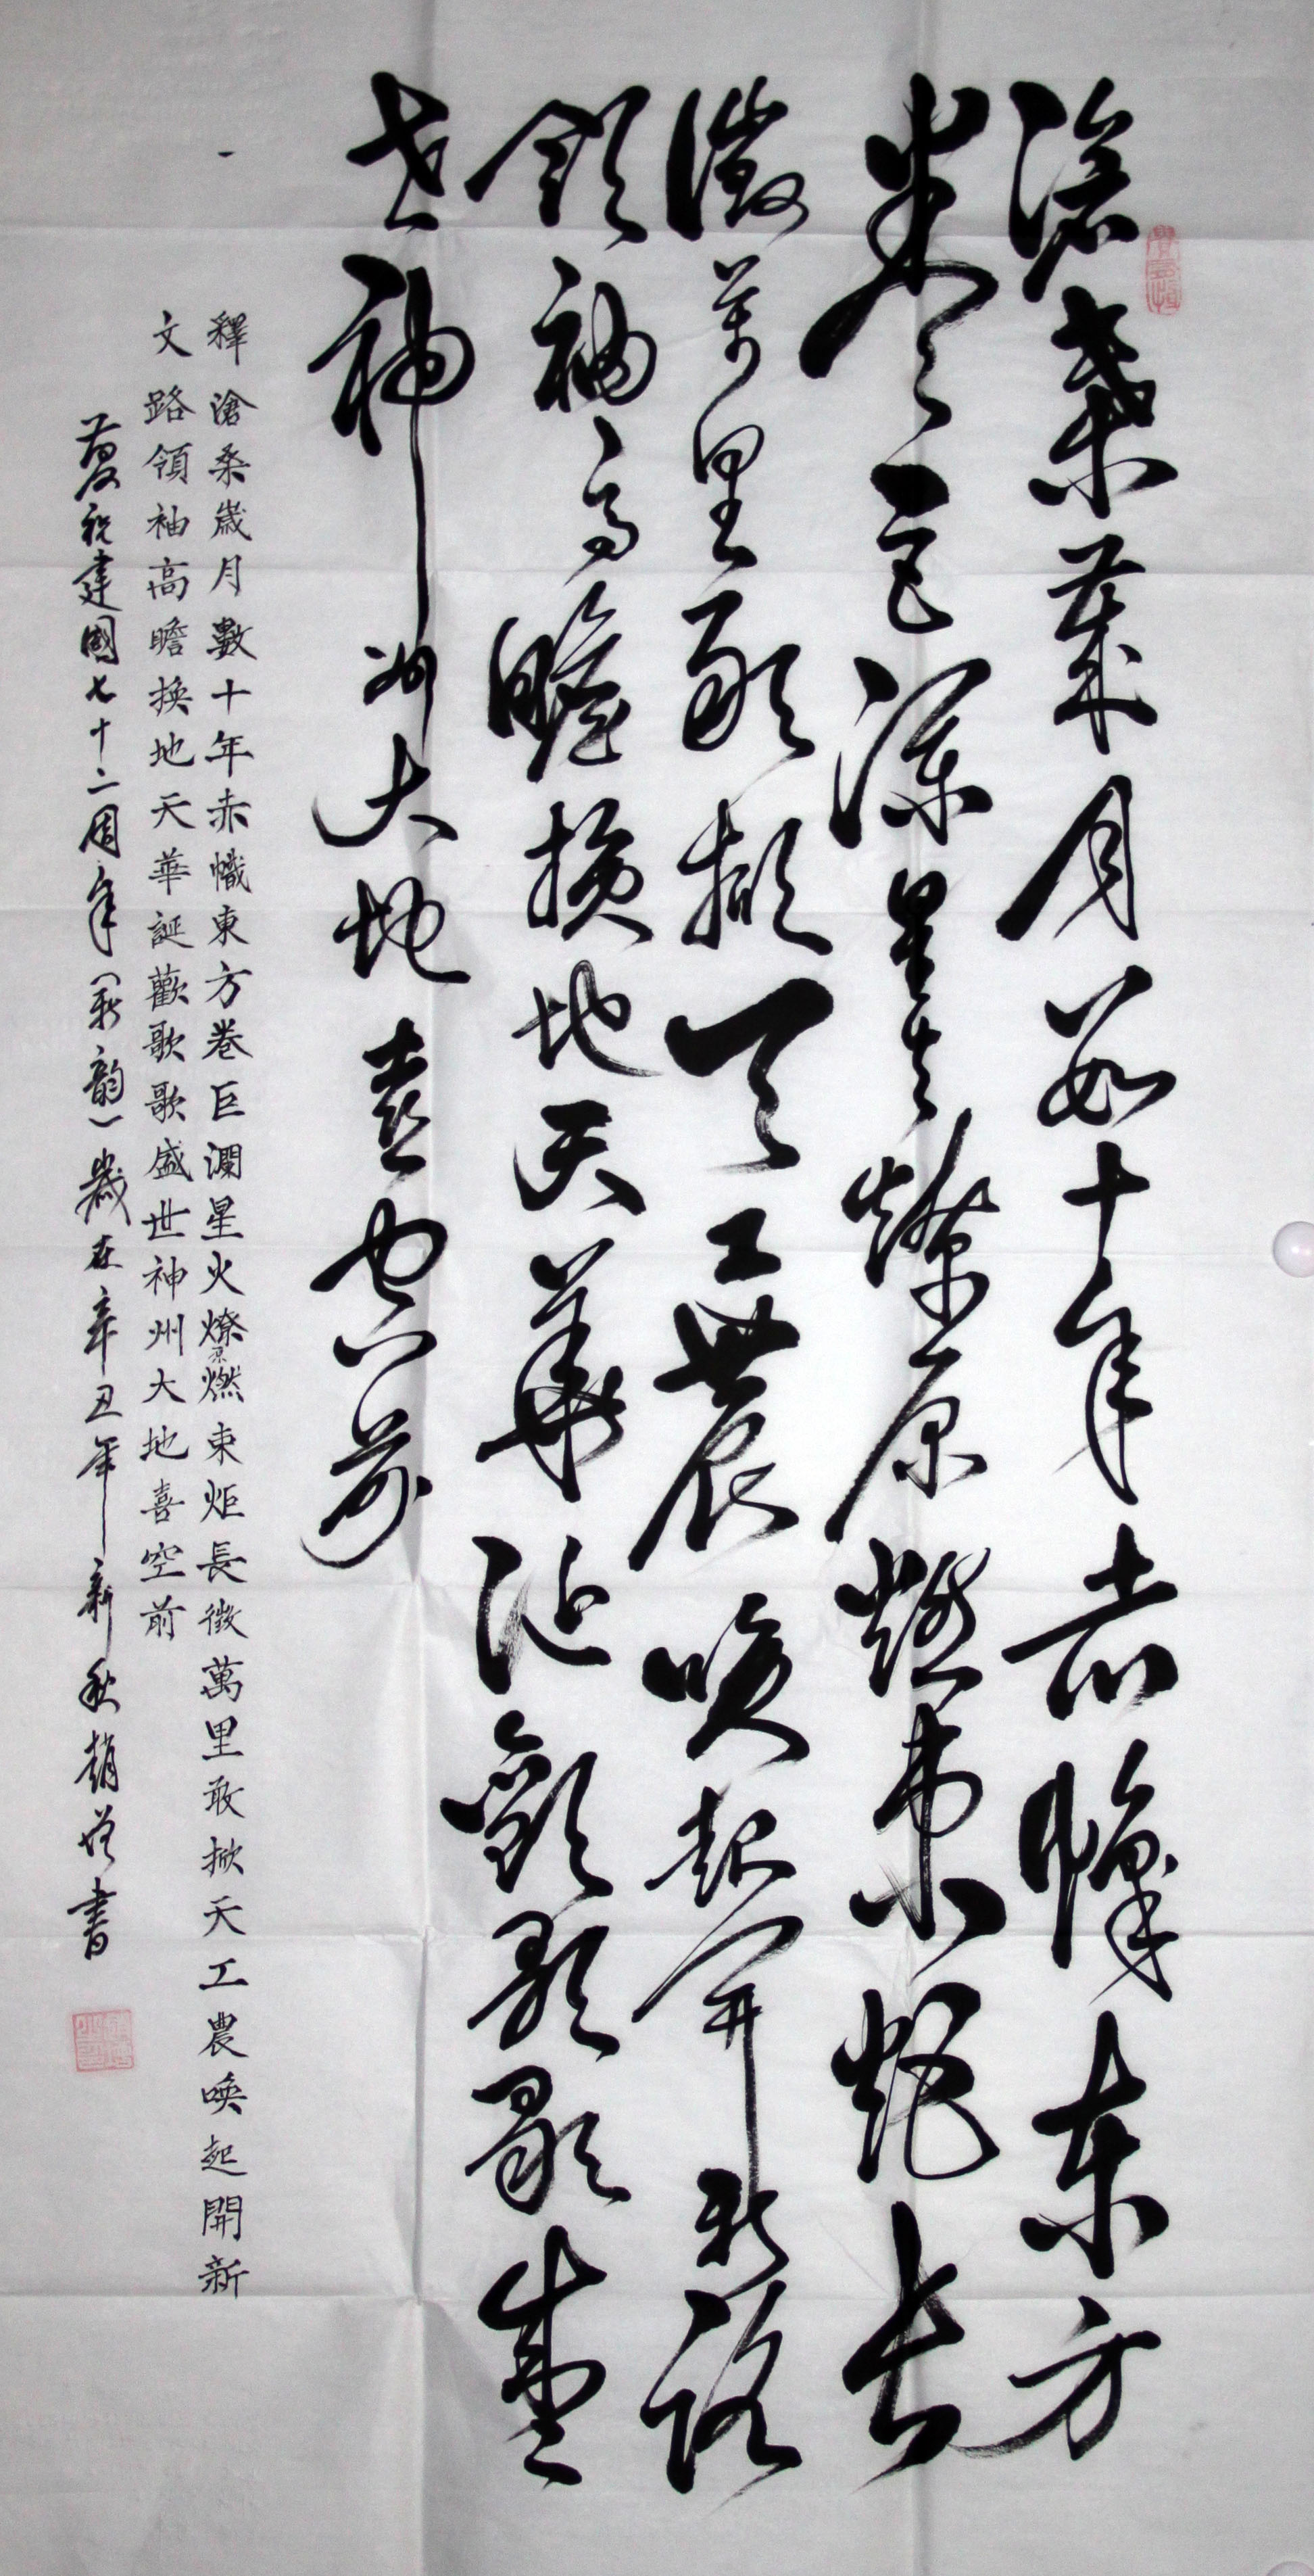 滄桑歲月數十年赤幟東方
卷巨瀾星火燎原燃束炬長
徵萬里敢掀天工農喚起開新路
領袖高瞻換地天華誕歡歌歌盛
世神州大地喜空前
釋滄桑歲月數十年赤幟東方卷巨瀾星火燎原燃束炬長徵萬里敢掀天工農喚起開新
文路領袖高瞻換地天華誕歡歌歌盛世神州大地喜空前
慶祝建國七十二周年(新韵)歲在辛丑年新秋趙書